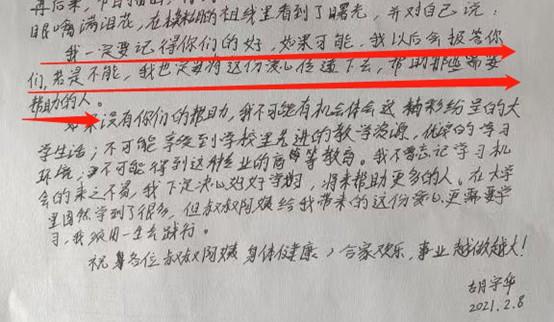 再后来，
眼噙满泪花，在模糊的视线里看到了曙光，并对自己说：
我一定要记得你们的好，如果可能，我以后会报答你
们，若是不能，我也定要将这份爱心传递下去，帮助那些需要
帮助的人。
如果没有你们的帮助，我不可能有机会体会这精彩纷呈的大
学生活；不可能享受到学校里先进的教学资源，优渥的学习
环境，更不可能得到这种专业的高等教育。我不忘记学习机
会的来之不易，我下定决心好好学习，将来帮助更多的人。在大学
里固然学到了很多，但叔叔阿姨给我带来的这份爱心更需要学
习，我须用一生去践行。
祝各位叔叔阿姨身体健康，合家欢乐，事业越做越大！
胡宇华
2021.2.8